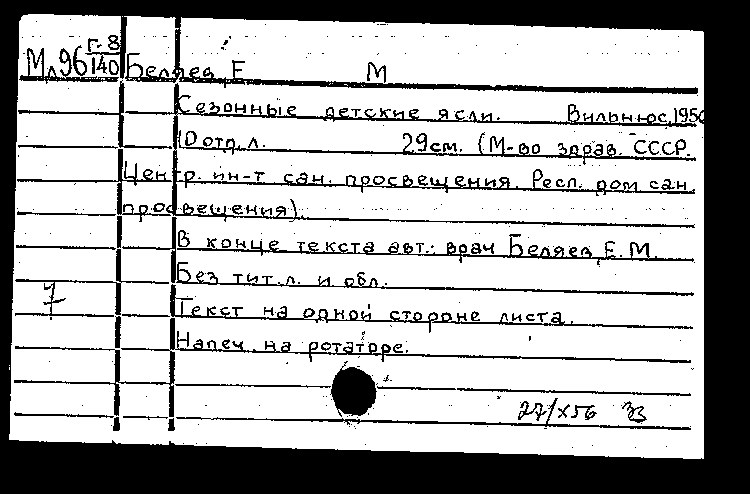 Мл96 Г-8/140 Беляев, Е М
Сезонные детские ясли. Вильнюс, 1950
10 отд. л. 29 см. (М-во здрав. СССР.
Центр. ин-т сан. просвещения. Респ. дом сан.
просвещения).
В конце текста авт.: врач Беляев, Е. М.
Без тит. л. и обл.
Текст на одной стороне листа.
7
Напеч. на ротаторе.
27/X 56